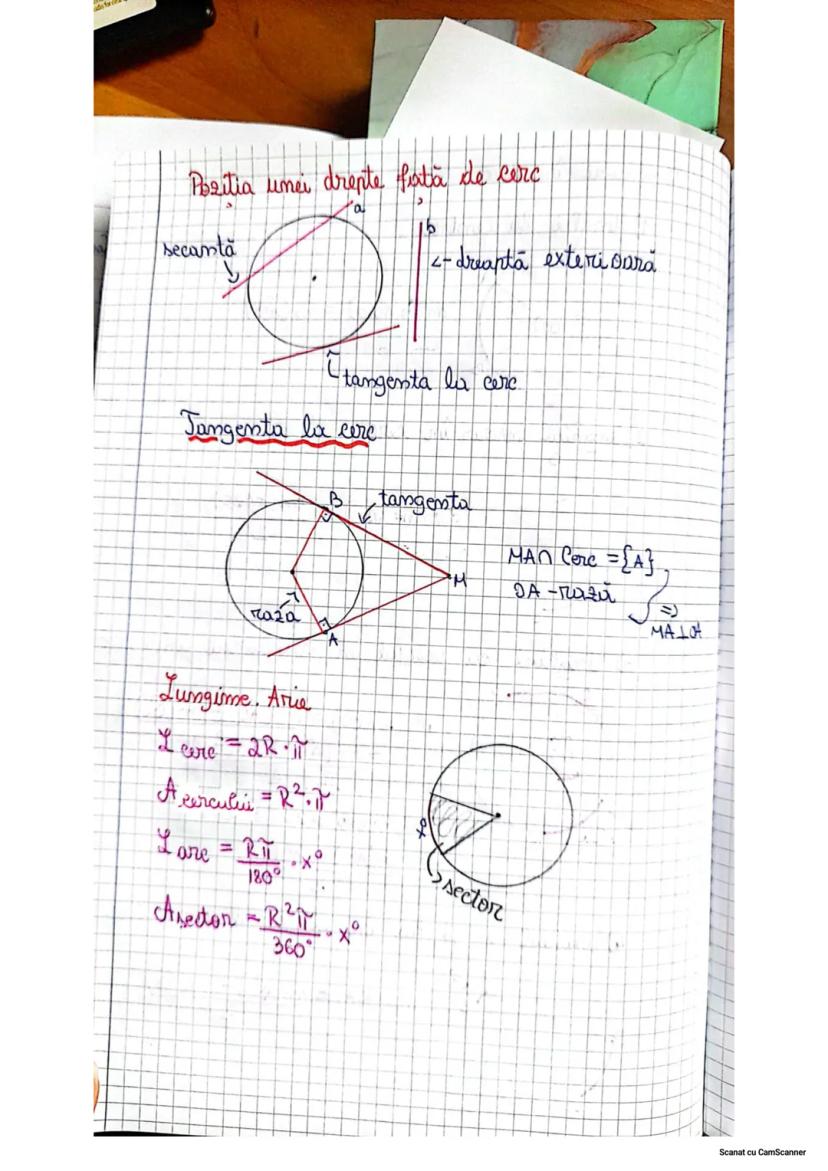 Poziția unei drepte față de cerc
a
secantă
b
<- dreaptă exterioară
tangenta la cerc
Tangenta la cerc
B
tangenta
M
rază
A
MA∩ Cerc = {A}
OA - rază
=>
MA⊥OA
Lungime. Arie
L cerc = 2R·π
A cercului = R²·π
L arc = Rπ/180° · x°
A sector = R²π/360° · x°
sector
Scanat cu CamScanner